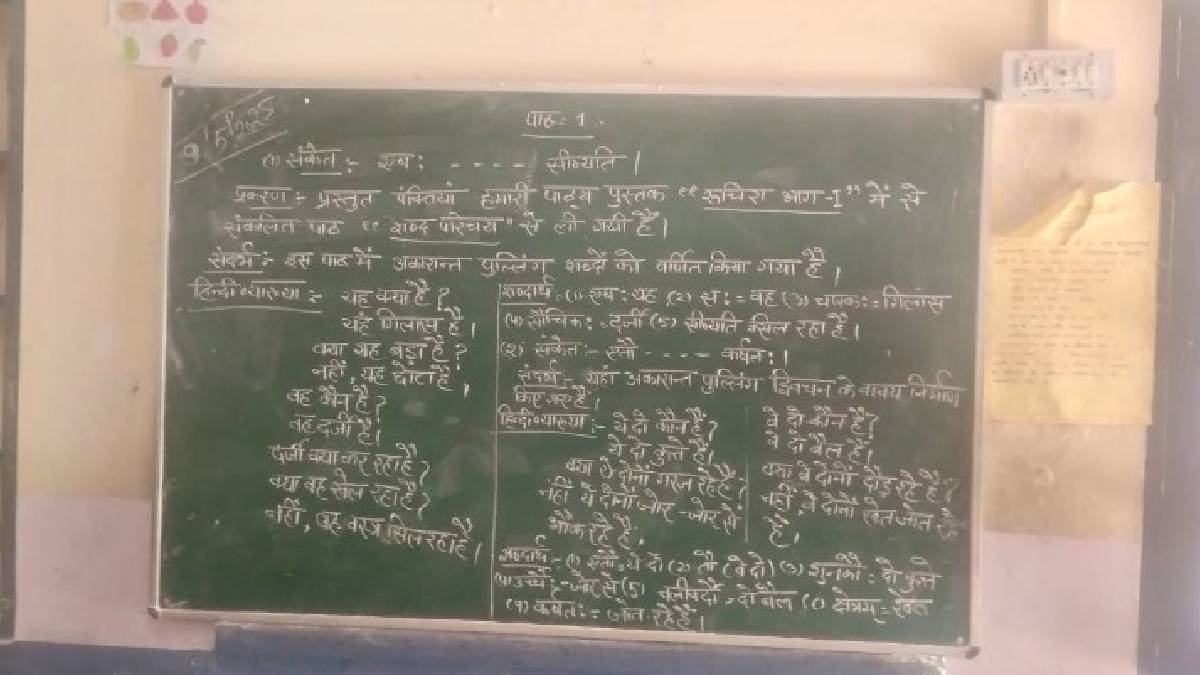 9/5/2025
पाठ:- 1.
(1) संकेत :- एष: ---- सीव्यति।
प्रकरण :- प्रस्तुत पंक्तियां हमारी पाठ्य पुस्तक "रूचिरा भाग-I" में से
संकलित पाठ "शब्द परिचय" से ली गयी है।
संदर्भ :- इस पाठ में अकारान्त पुल्लिंग शब्दों को वर्णित किया गया है।
हिन्दी व्याख्या :- यह क्या है?
यह गिलास है।
क्या यह बड़ा है?
नहीं, यह छोटा है।
वह कौन है?
वह दर्जी है।
दर्जी क्या कर रहा है?
क्या वह खेल रहा है?
नहीं, वह वस्त्र सिल रहा है।
शब्दार्थ - (1) एष: यह (2) स: = वह (3) चषक: = गिलास
(4) सौचिक: = दर्जी (5) सीव्यति = सिल रहा है।
(2) संकेत :- एतौ ---- कर्षत:।
संदर्भ - यहां अकारान्त पुल्लिंग द्विवचन के वाक्य निर्माण
किए गए है।
हिन्दी व्याख्या :- ये दो कौन हैं?
ये दो कुत्ते हैं।
क्या ये दोनों गरज रहे हैं?
नहीं ये दोनों जोर-जोर से
भौंक रहे हैं।
वे दो कौन हैं?
ये दो बैल हैं।
क्या वे दोनों दौड़ रहे हैं?
नहीं, वे दोनों खेत जोत रहे
हैं।
शब्दार्थ - (1) एतौ = ये दो (2) तौ (वे दो) (3) शुनकौ = दो कुत्ते
(4) उच्चै: - जोर से (5) बलीवर्दौ = दो बैल (6) क्षेत्रम् = खेत
(7) कर्षत: = जोत रहे हैं।